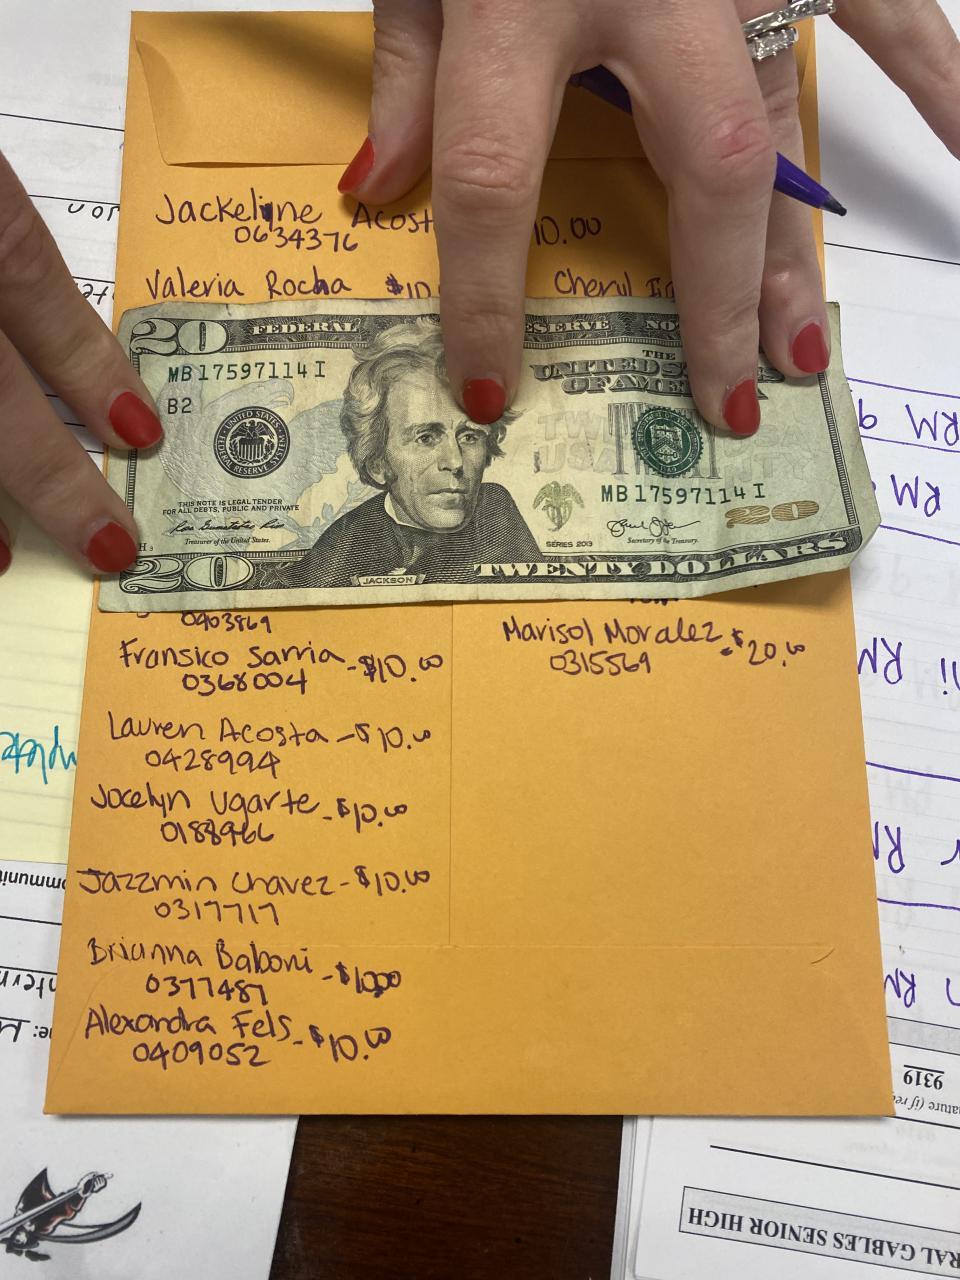 Jackeliyne Acost 10.00
0634376
Valeria Rocha $10
Cheryl
20 FEDERAL RESERVE NO
THE
UNITED STATES
OF AMERICA
MB 17597114 I
B2
UNITED STATES FEDERAL RESERVE SYSTEM
THIS NOTE IS LEGAL TENDER
FOR ALL DEBTS, PUBLIC AND PRIVATE
Treasurer of the United States.
MB 17597114 I
20
SERIES 2013
Secretary of the Treasury.
H 3
20 JACKSON TWENTY DOLLARS
0403869
Fransico Sarria - $10.00
0368004
Lauren Acosta - $10.00
0428994
Jocelyn Ugarte - $10.00
0188966
Jazzmin Chavez - $10.00
0317717
Brianna Baboni - $10.00
0377487
Alexandra Fels - $10.00
0409052
Marisol Moralez - $20.00
0315569
RM 9
RM
RM
RM
RM
9319
RAL GABLES SENIOR HIGH